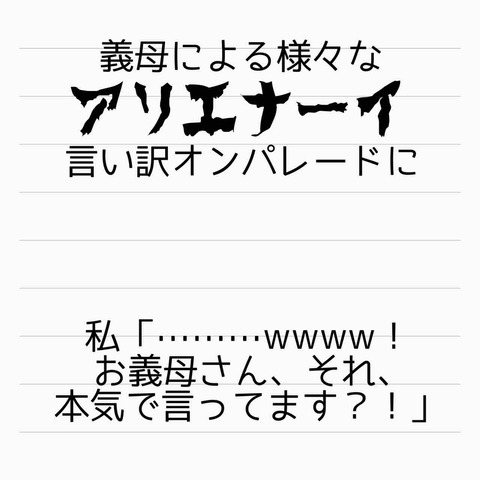 義母による様々な
アリエナーイ
言い訳オンパレードに
私「………wwww！
お義母さん、それ、
本気で言ってます？！」